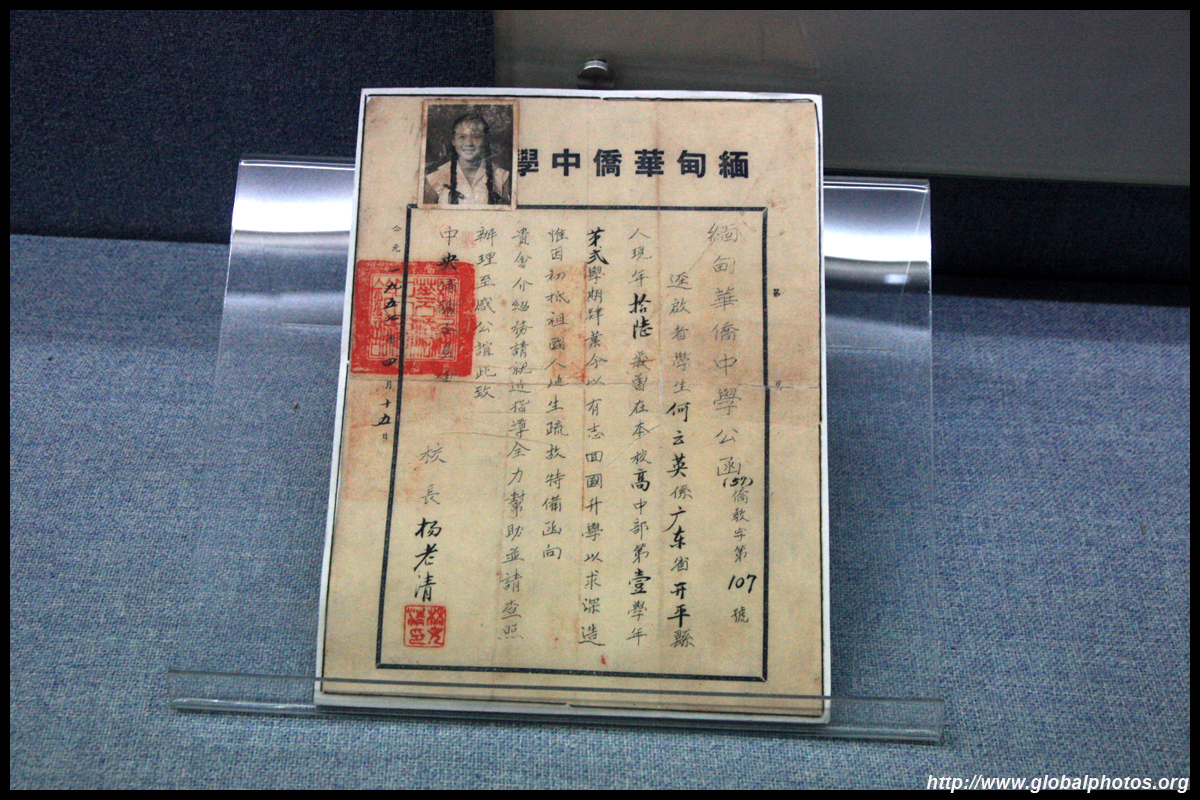 緬甸華僑中學
緬甸華僑中學公函
(57)僑教字第107號
逕啟者學生何云英係广东省开平縣
人現年拾陸歲曾在本校高中部第壹學年
第弍學期肄業今以有志回國升學以求深造
惟因初抵祖國人地生疏故特備函向
貴會介紹務請就近指導全力幫助並請查照
辦理至感公誼此致
中央僑務委員會
校長杨老清
公元一九五七年四月十五日
http://www.globalphotos.org